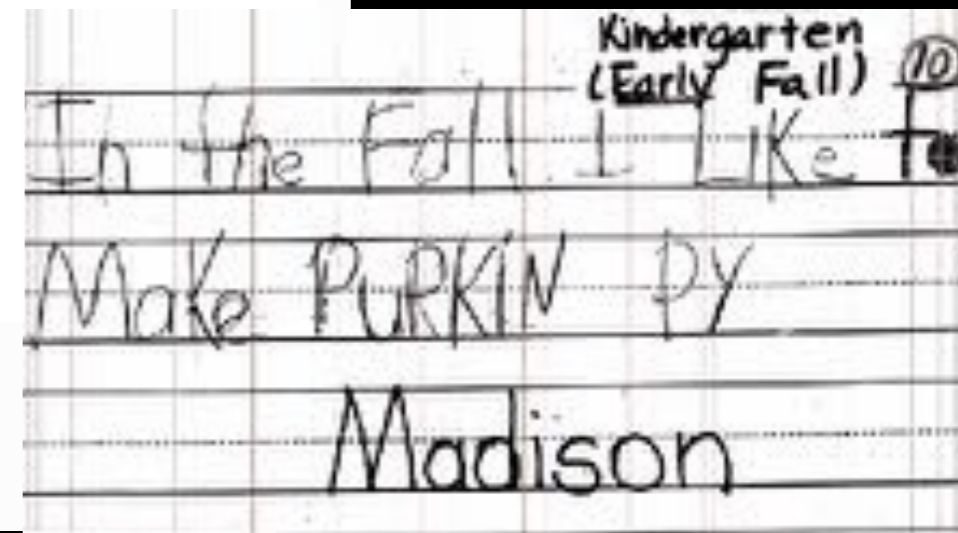 Kindergarten
(Early Fall) 10
In the Fall I Like To
Make PURKIN PY
Madison